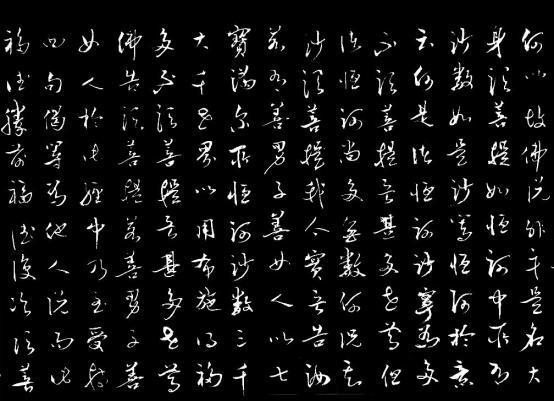 何以故佛說非身是名大
身須菩提如恒河中所有
沙數如是沙等恒河於意
云何是諸恒河沙寧為多
不須菩提言甚多世尊但
諸恒河尚多無數何況其
沙須菩提我今實言告汝
若有善男子善女人以七
寶滿爾所恒河沙數三千
大千世界以用布施得福
多不須菩提言甚多世尊
佛告須菩提若善男子善
女人於此經中乃至受持
四句偈等為他人說而此
福德勝前福德復次須菩